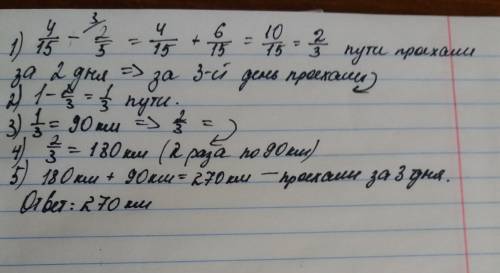 1) 4/15 - 2/5 ³ = 4/15 + 6/15 = 10/15 = 2/3 пути проехали
за 2 дня => за 3-й день проехали
2) 1 - 2/3 = 1/3 пути.
3) 1/3 = 90 км => 2/3 =
4) 2/3 = 180 км (2 раза по 90 км)
5) 180 км + 90 км = 270 км — проехали за 3 дня.
Ответ: 270 км